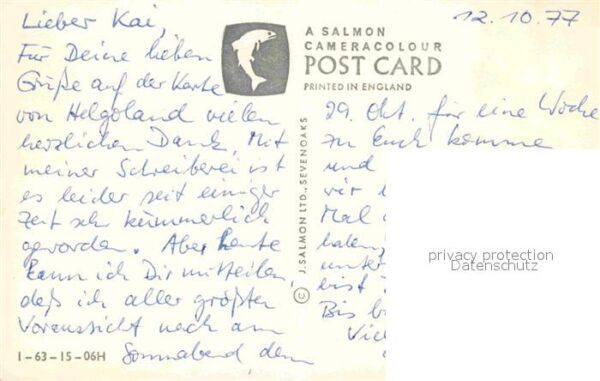 12.10.77
Lieber Kai,
Für Deine lieben
Grüße auf der Karte
von Helgoland vielen
herzlichen Dank. Mit
meiner Schreiberei ist
es leider seit einiger
Zeit sehr kümmerlich
geworden. Aber heute
kann ich Dir mitteilen,
daß ich aller größten
Voraussicht nach am
Sonnabend, dem
A SALMON
CAMERACOLOUR
POST CARD
PRINTED IN ENGLAND
© J. SALMON LTD., SEVENOAKS
1-63-15-06H
29. Okt. für eine Woche
zu Euch komme
und
wir
Mal
haben,
unter
bist
Bis b
Vie
privacy protection
Datenschutz